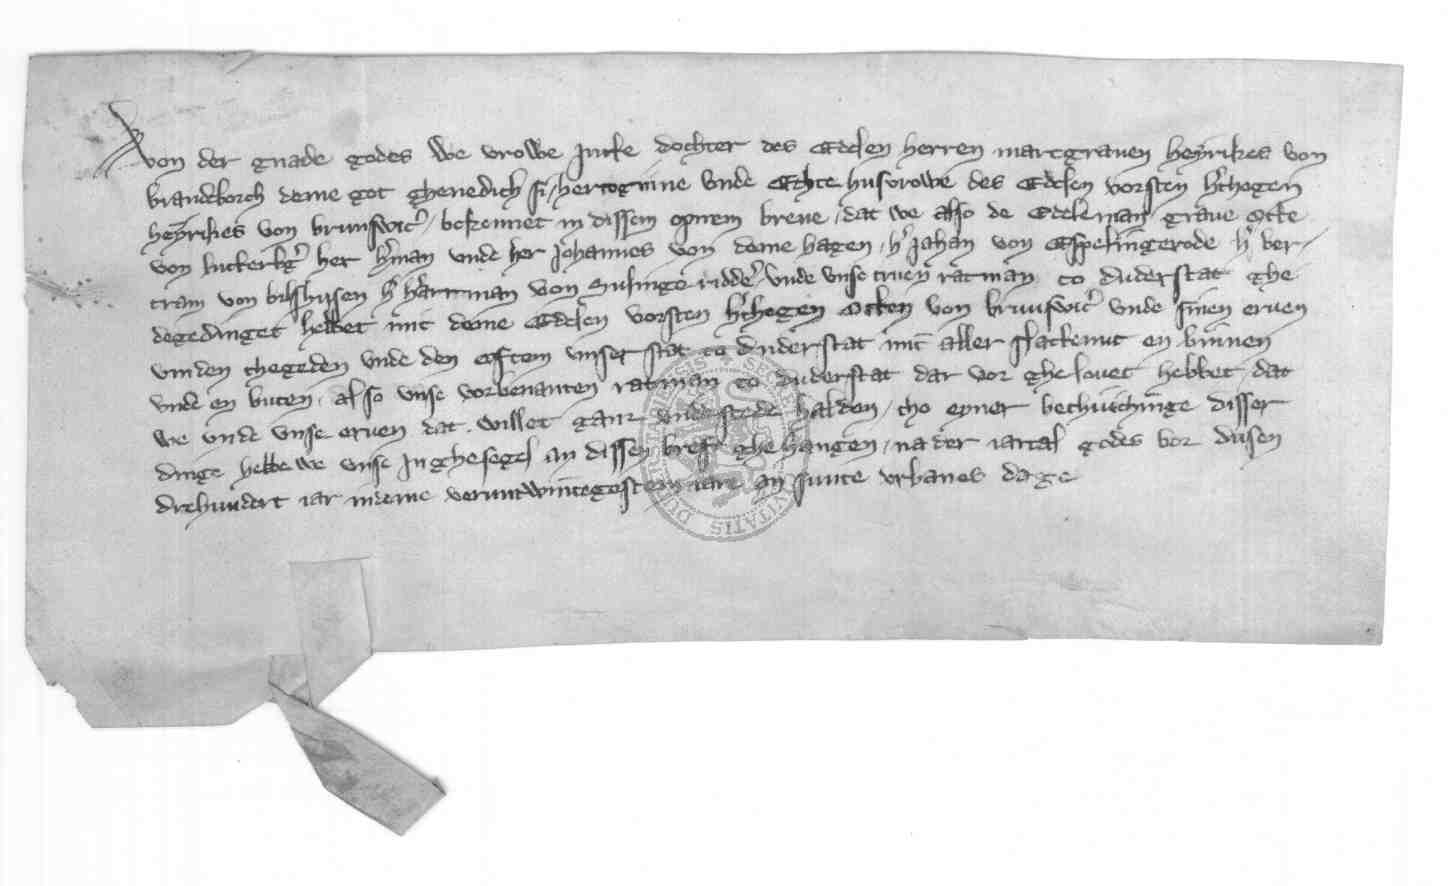 Von der gnade godes We vrowe Jutte dochter des Edelen herren marcgraven heyrikes von
brandeborch deme got ghenedich si, hertoginne vnde Echte husvrowe des Edelen vorsten h'thogen
heyrikes von brunswic, bekennet in dissem opnem breue, dat we also de Edeleman graue Otte
von lutterb'g her h'man vnde her Johannes von deme hagen, h' Johan von Espelingerode h' ber-
tram von bilshusen h' hartman von Sulinge riddere, vnde vnse truen ratman to duderstat ghe
degedinget hebbet mit deme Edelen vorsten h'thogen Otten von brunswic vnde sinen eruen
vmden thegeden vnde den oftem vnser stat to duderstat mit aller slachtenut en binnen
vnde en buten, also vnse vorbenanten ratman to duderstat dar vor ghelouet hebbet, dat
we vnde vnse eruen dat willet ganz vnde stede halden, tho eyner bethuichinge disser
dinge hebbe we vnse Jnghesegel an dissen bref ghe hangen, na der iartal godes bor dusen
drehundert iar indeme verunttwintegestem iare an sunte vrbanes dage
SECRETVM CIVITATIS DVDERSTATENSIS